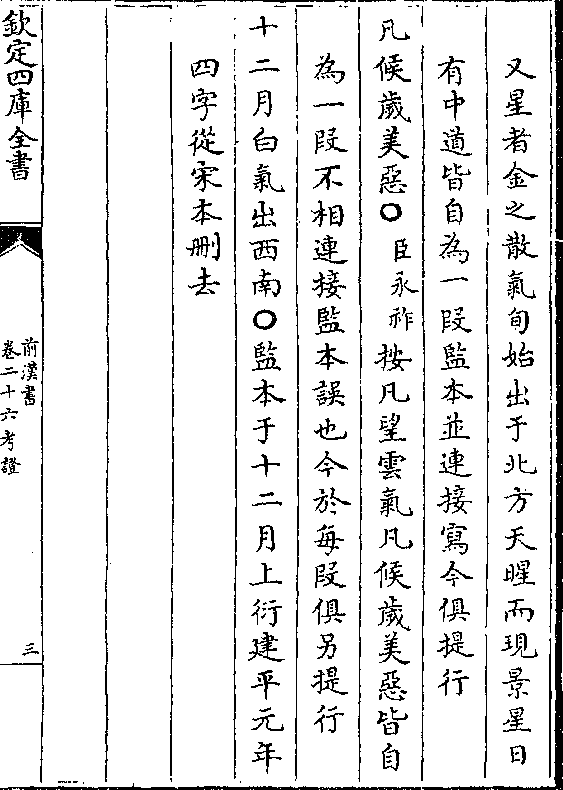 又星者金之散氣旬始出于北方天暒而現景星日
有中道皆自為一段監本並連接寫今俱提行
凡候歲美惡○臣永祚按凡望雲氣凡候歲美惡皆自
為一段不相連接監本誤也今於每段俱另提行
十二月白氣出西南○監本于十二月上衍建平元年
四字從宋本刪去
欽定四庫全書
前漢書
卷二十六考證
三